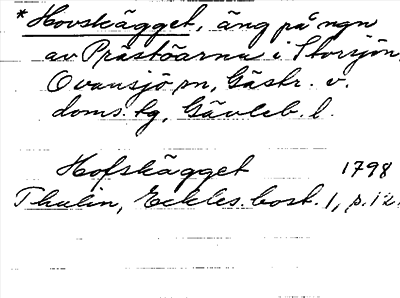 * Hovskägget, äng på ngn
av Prästöarna i Storsjön,
Ovansjö sn, Gästr. v.
doms. tg, Gävleb. l.
Hofskägget 1798
Thulin, Eckles. bost. 1, p. 12.